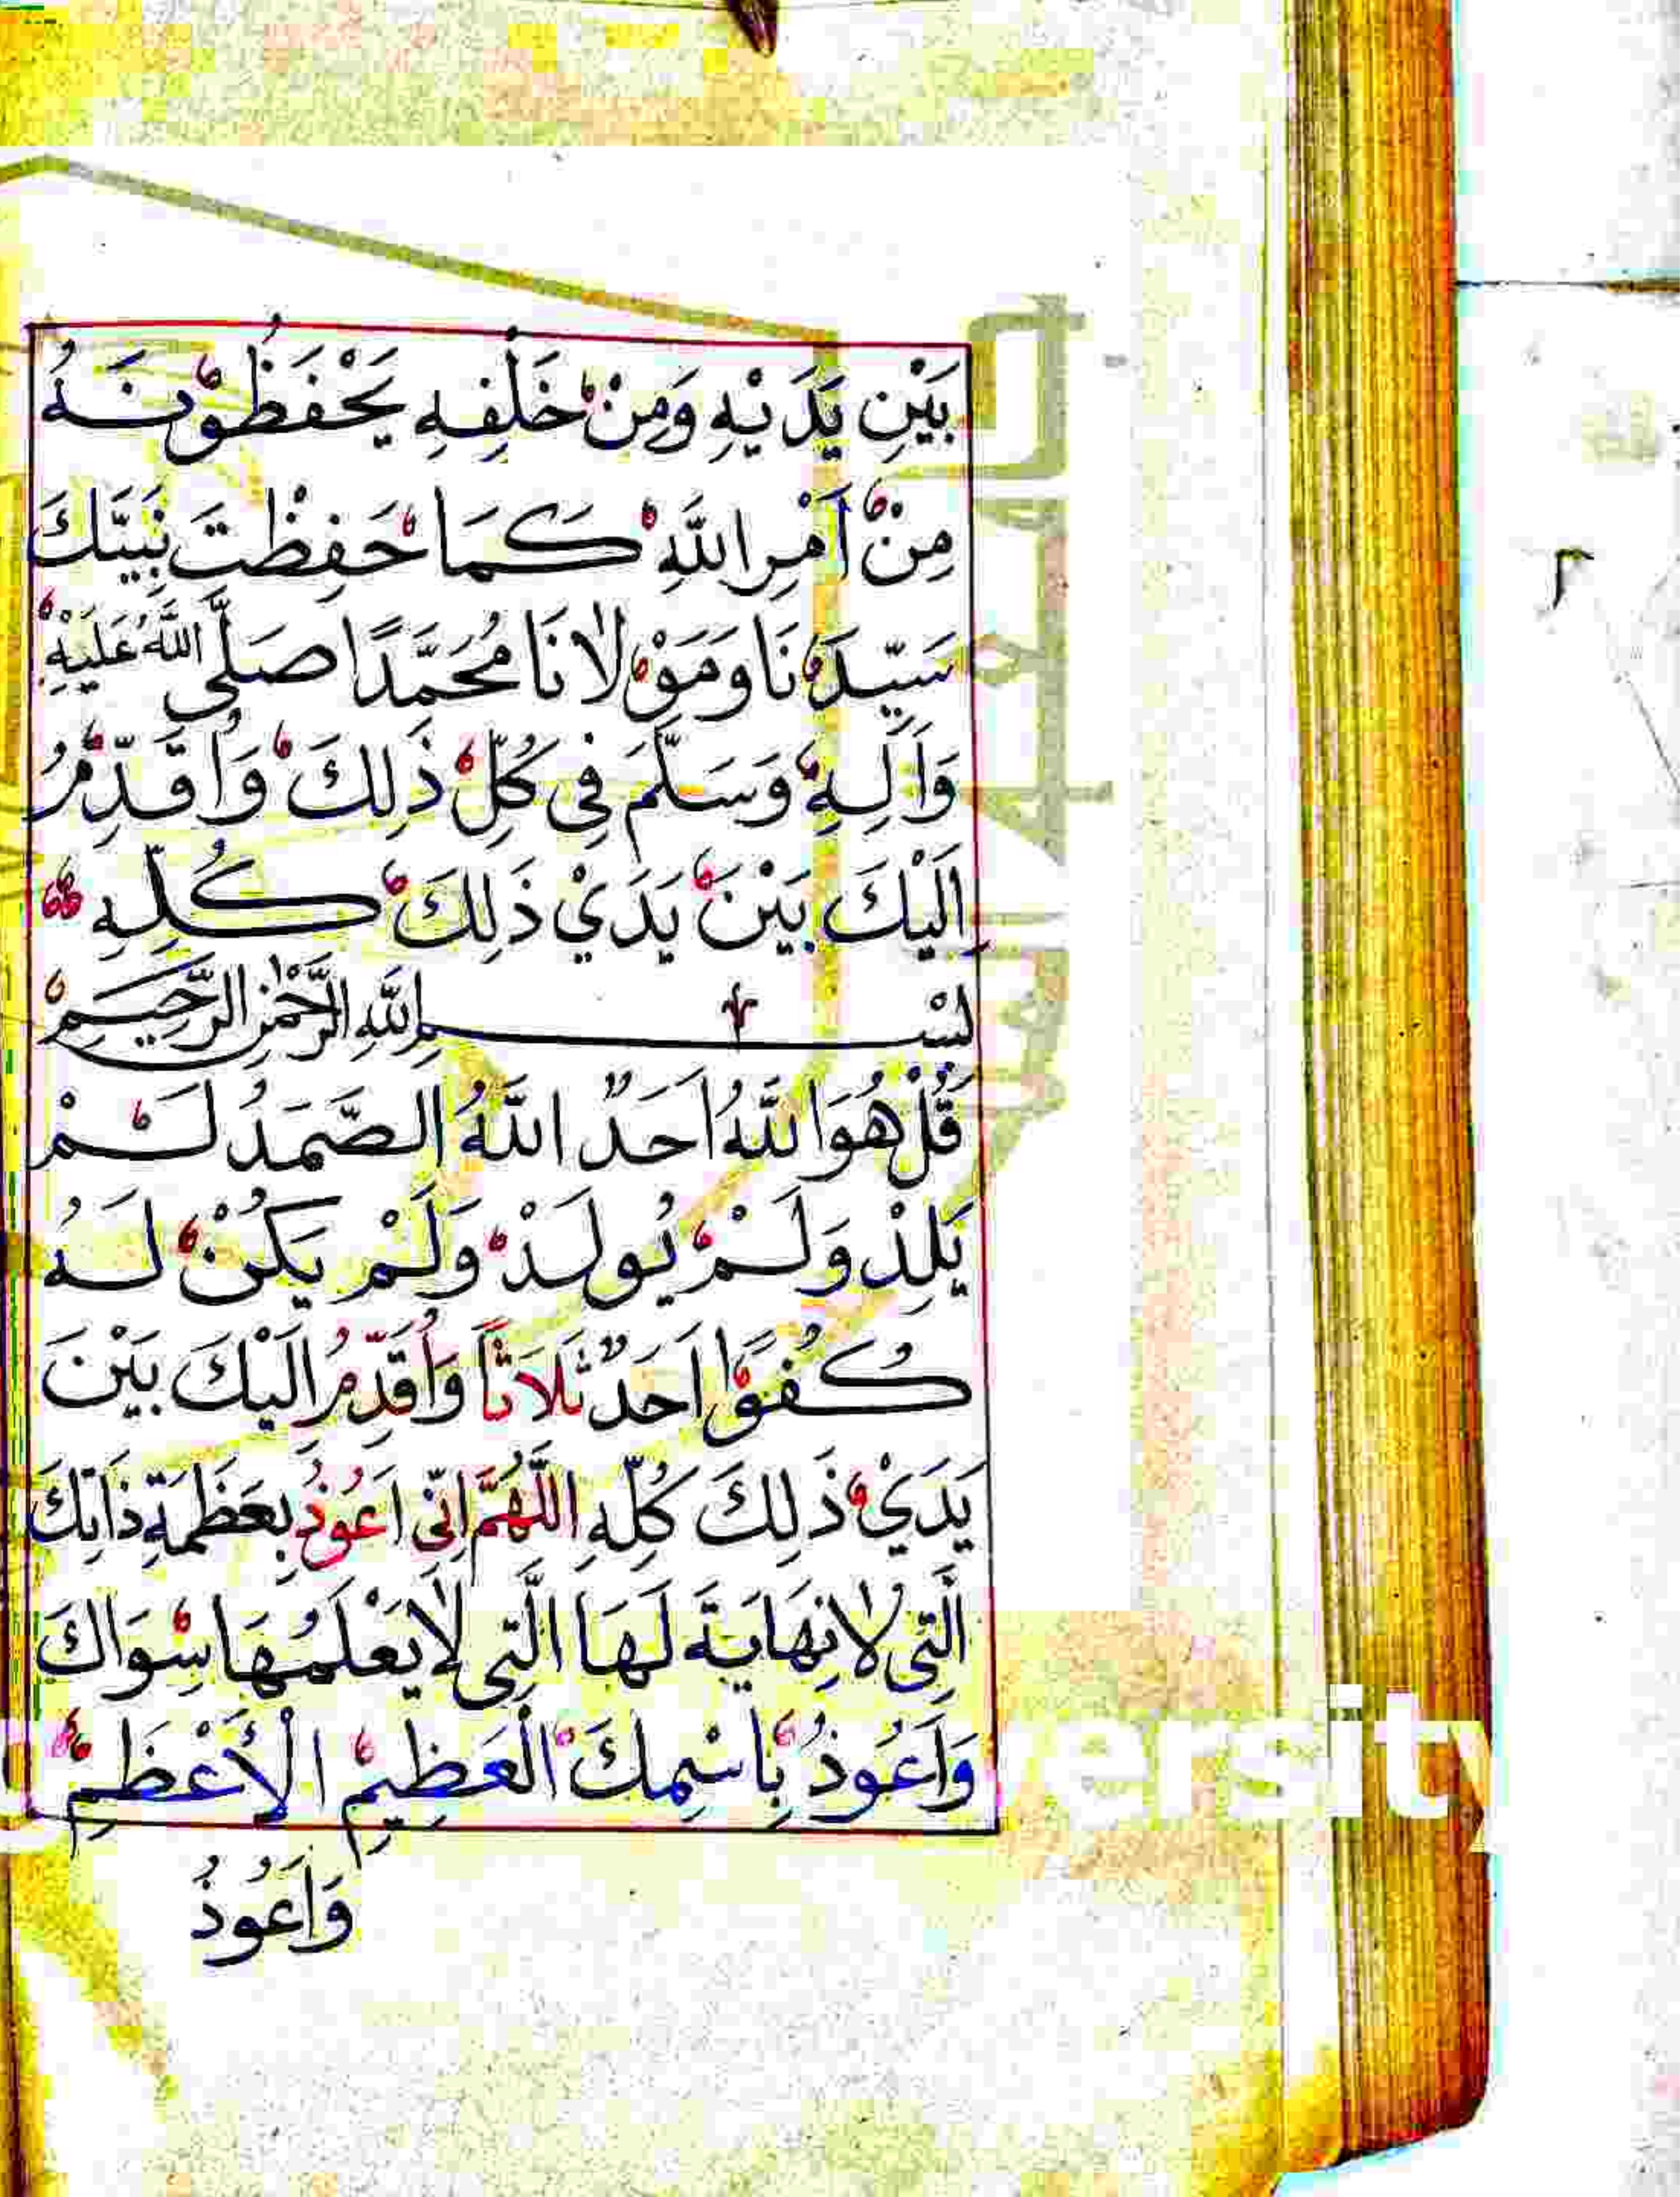 بَيْنِ يَدَيْهِ وَمِنْ خَلْفِهِ يَحْفَظُوْنَهُ
مِنْ أَمْرِ اللَّهِ كَمَا حَفِظْتَ نَبِيَّكَ
سَيِّدَنَا وَمَوْلَانَا مُحَمَّدًا صَلَّى اللَّهُ عَلَيْهِ
وَآلِهِ وَسَلَّمَ فِي كُلِّ ذَلِكَ وَأُقَدِّمُ
اِلَيْكَ بَيْنَ يَدَيْ ذَلِكَ كُلِّهِ
بِسْمِ اللَّهِ الرَّحْمٰنِ الرَّحِيمِ
قُلْ هُوَ اللَّهُ اَحَدٌ اللَّهُ الصَّمَدُ لَمْ
يَلِدْ وَلَمْ يُولَدْ وَلَمْ يَكُنْ لَهُ
كُفُوًا اَحَدٌ ثَلَاثًا وَأُقَدِّمُ اِلَيْكَ بَيْنَ
يَدَيْ ذَلِكَ كُلِّهِ اللَّهُمَّ اِنِّي اَعُوذُ بِعَظَمَةِ ذَاتِكَ
الَّتِي لَا نِهَايَةَ لَهَا الَّتِي لَا يَعْلَمُهَا سِوَاكَ
وَاَعُوذُ بِاسْمِكَ الْعَظِيمِ الْأَعْظَمِ
وَاَعُوذُ
٢
ersity